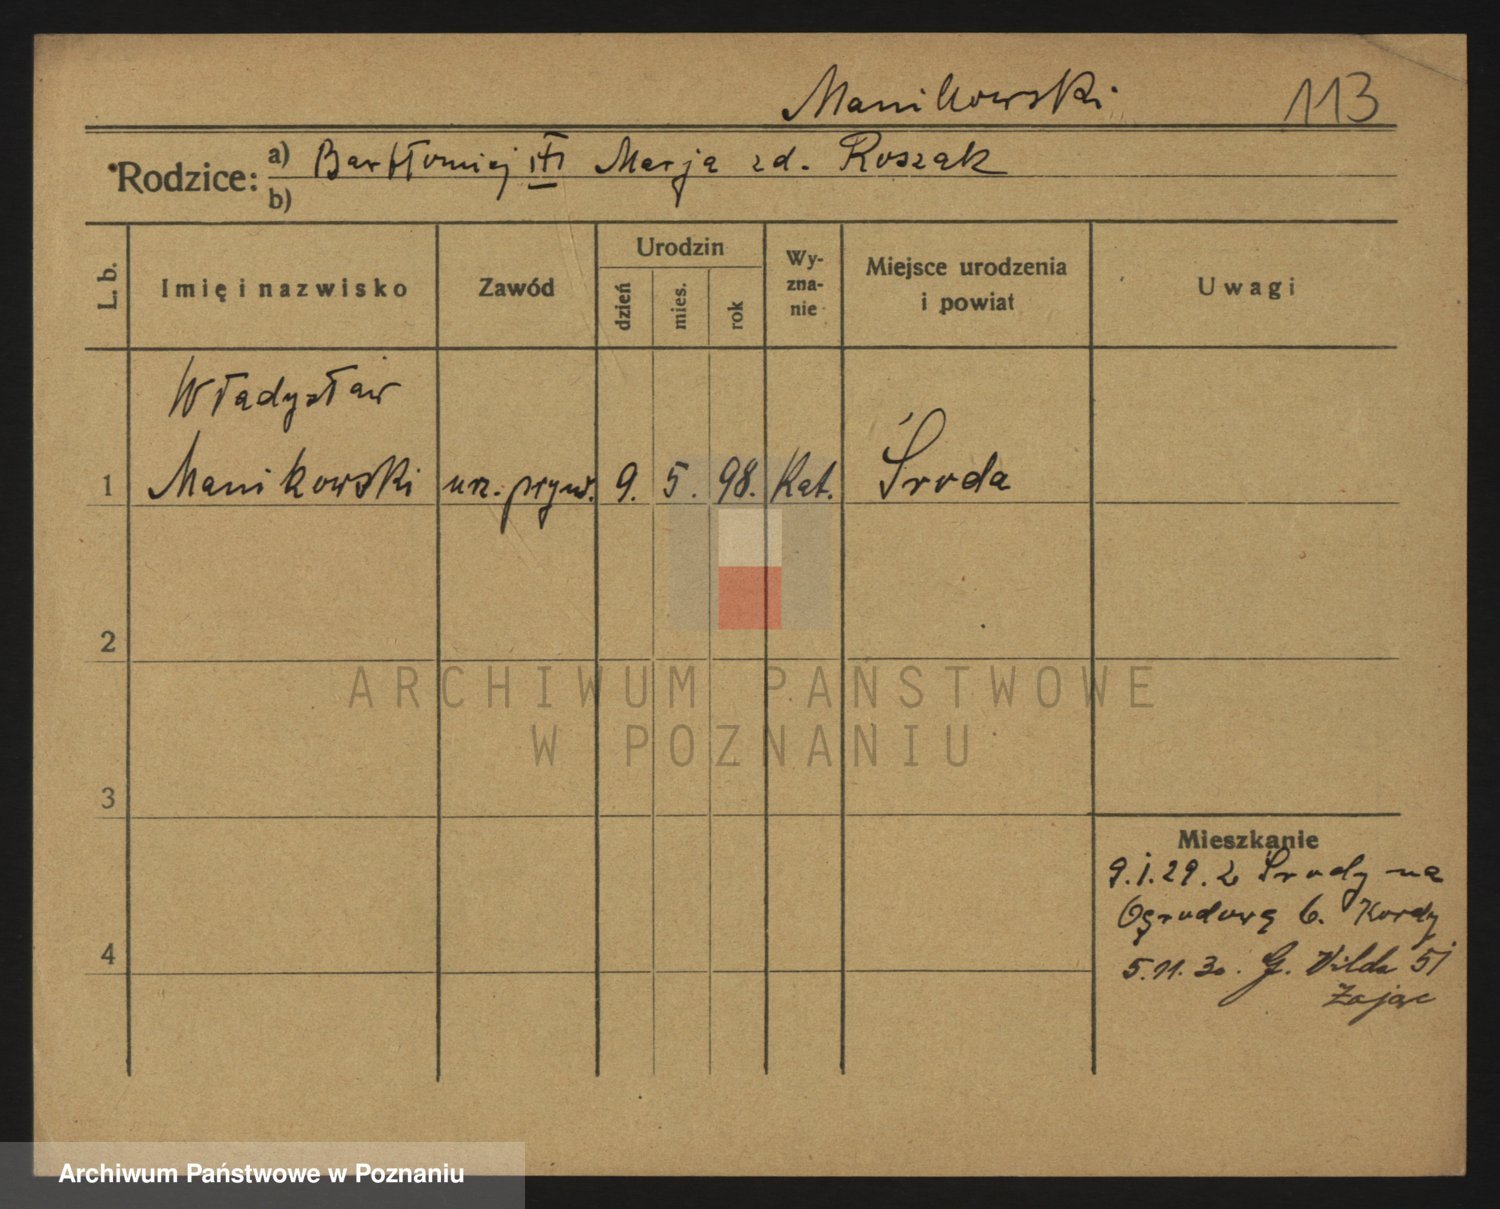 Manikowski 113
Rodzice: a) Bartłomiej Marja zd. Roszak
b)
L. b.
Imię i nazwisko
Zawód
Urodzin
dzień
mies.
rok
Wy-
zna-
nie
Miejsce urodzenia
i powiat
Uwagi
Władysław
1 Manikowski urz. pryw. 9. 5. 98. Kat. Środa
2
3
4
Mieszkanie
9.1.29. z Środy na
Ogrodową 6. Kordy
5.11.30. G. Wilda 51
Zając
ARCHIWUM PAŃSTWOWE
W POZNANIU
Archiwum Państwowe w Poznaniu